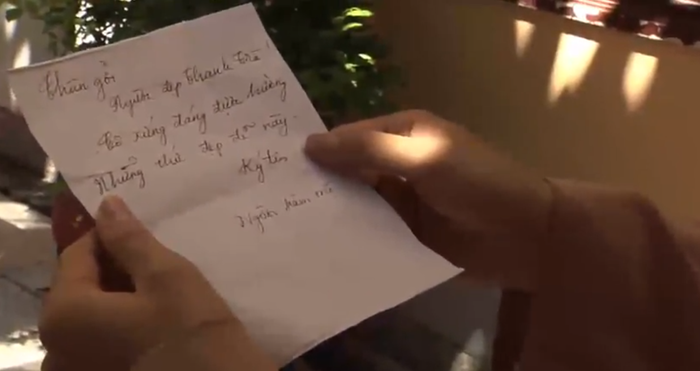 Thân gởi
Người đẹp Thanh Trà!
Cô xứng đáng được hưởng
Những thứ đẹp đẽ này.
Ký tên
Người hâm mộ